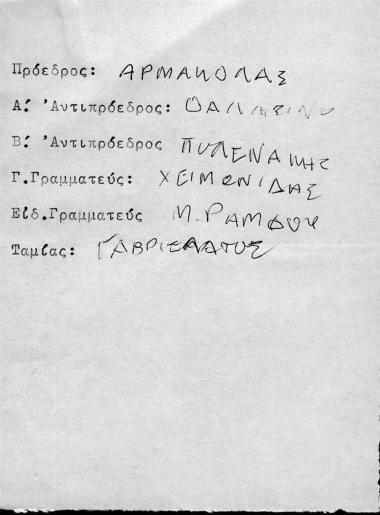 Πρόεδρος: ΑΡΜΑΚΟΛΑΣ
Α.' Ἀντιπρόεδρος:
Β.' Ἀντιπρόεδρος ΠΥΛΕΝΑΚΗΣ
Γ.Γραμματεύς: ΧΕΙΜΩΝΙΔΗΣ
Εἰδ.Γραμματεύς Μ. ΡΑΜΦΟΥ
Ταμίας: ΓΑΒΡΙΕΛΑΤΟΣ